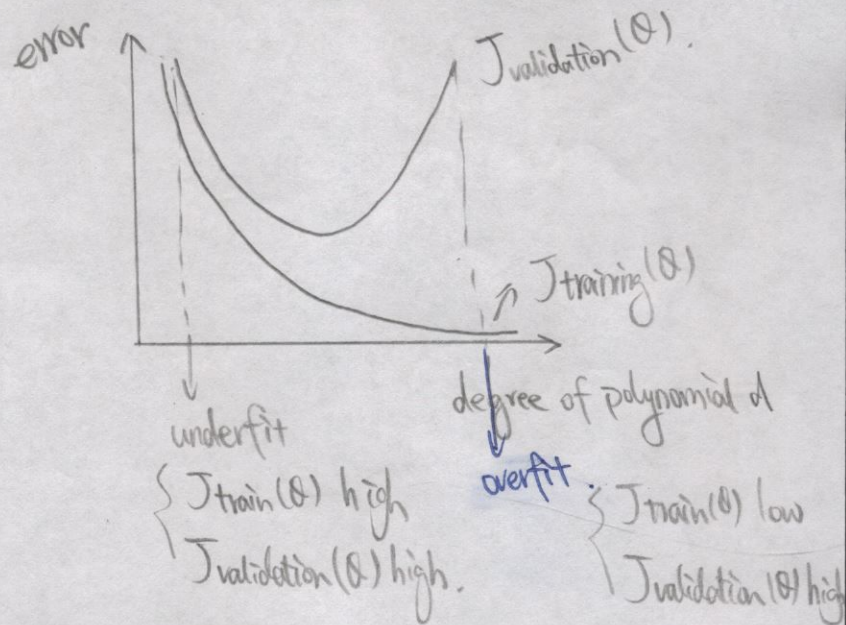 error
Jvalidation(θ).
Jtraining(θ)
degree of polynomial d
underfit
Jtrain(θ) high
Jvalidation(θ) high.
overfit.
Jtrain(θ) low
Jvalidation(θ) high